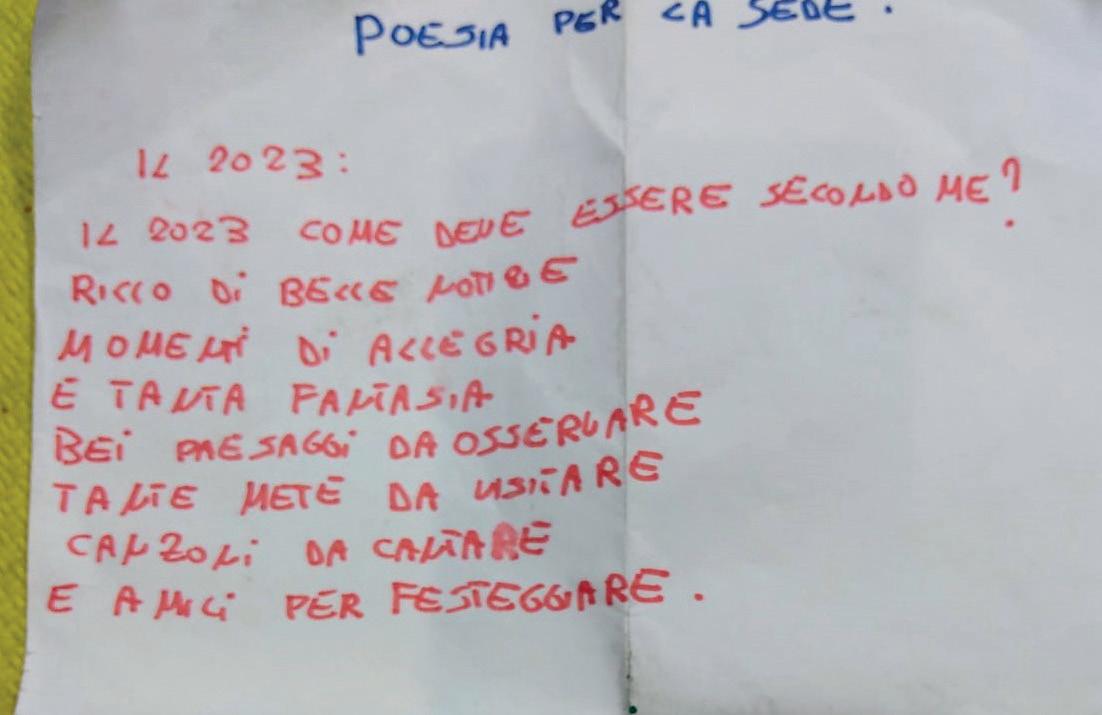 POESIA PER LA SEDE.
IL 2023:
IL 2023 COME DEVE ESSERE SECONDO ME?
RICCO Di BELLE NOTIZIE
MOMENTi Di ALLEGRIA
E TANTA FANTASIA
BEi PAESAGGi DA OSSERVARE
TANTE METE DA VISITARE
CANZONi DA CANTARE
E AMICi PER FESTEGGIARE.